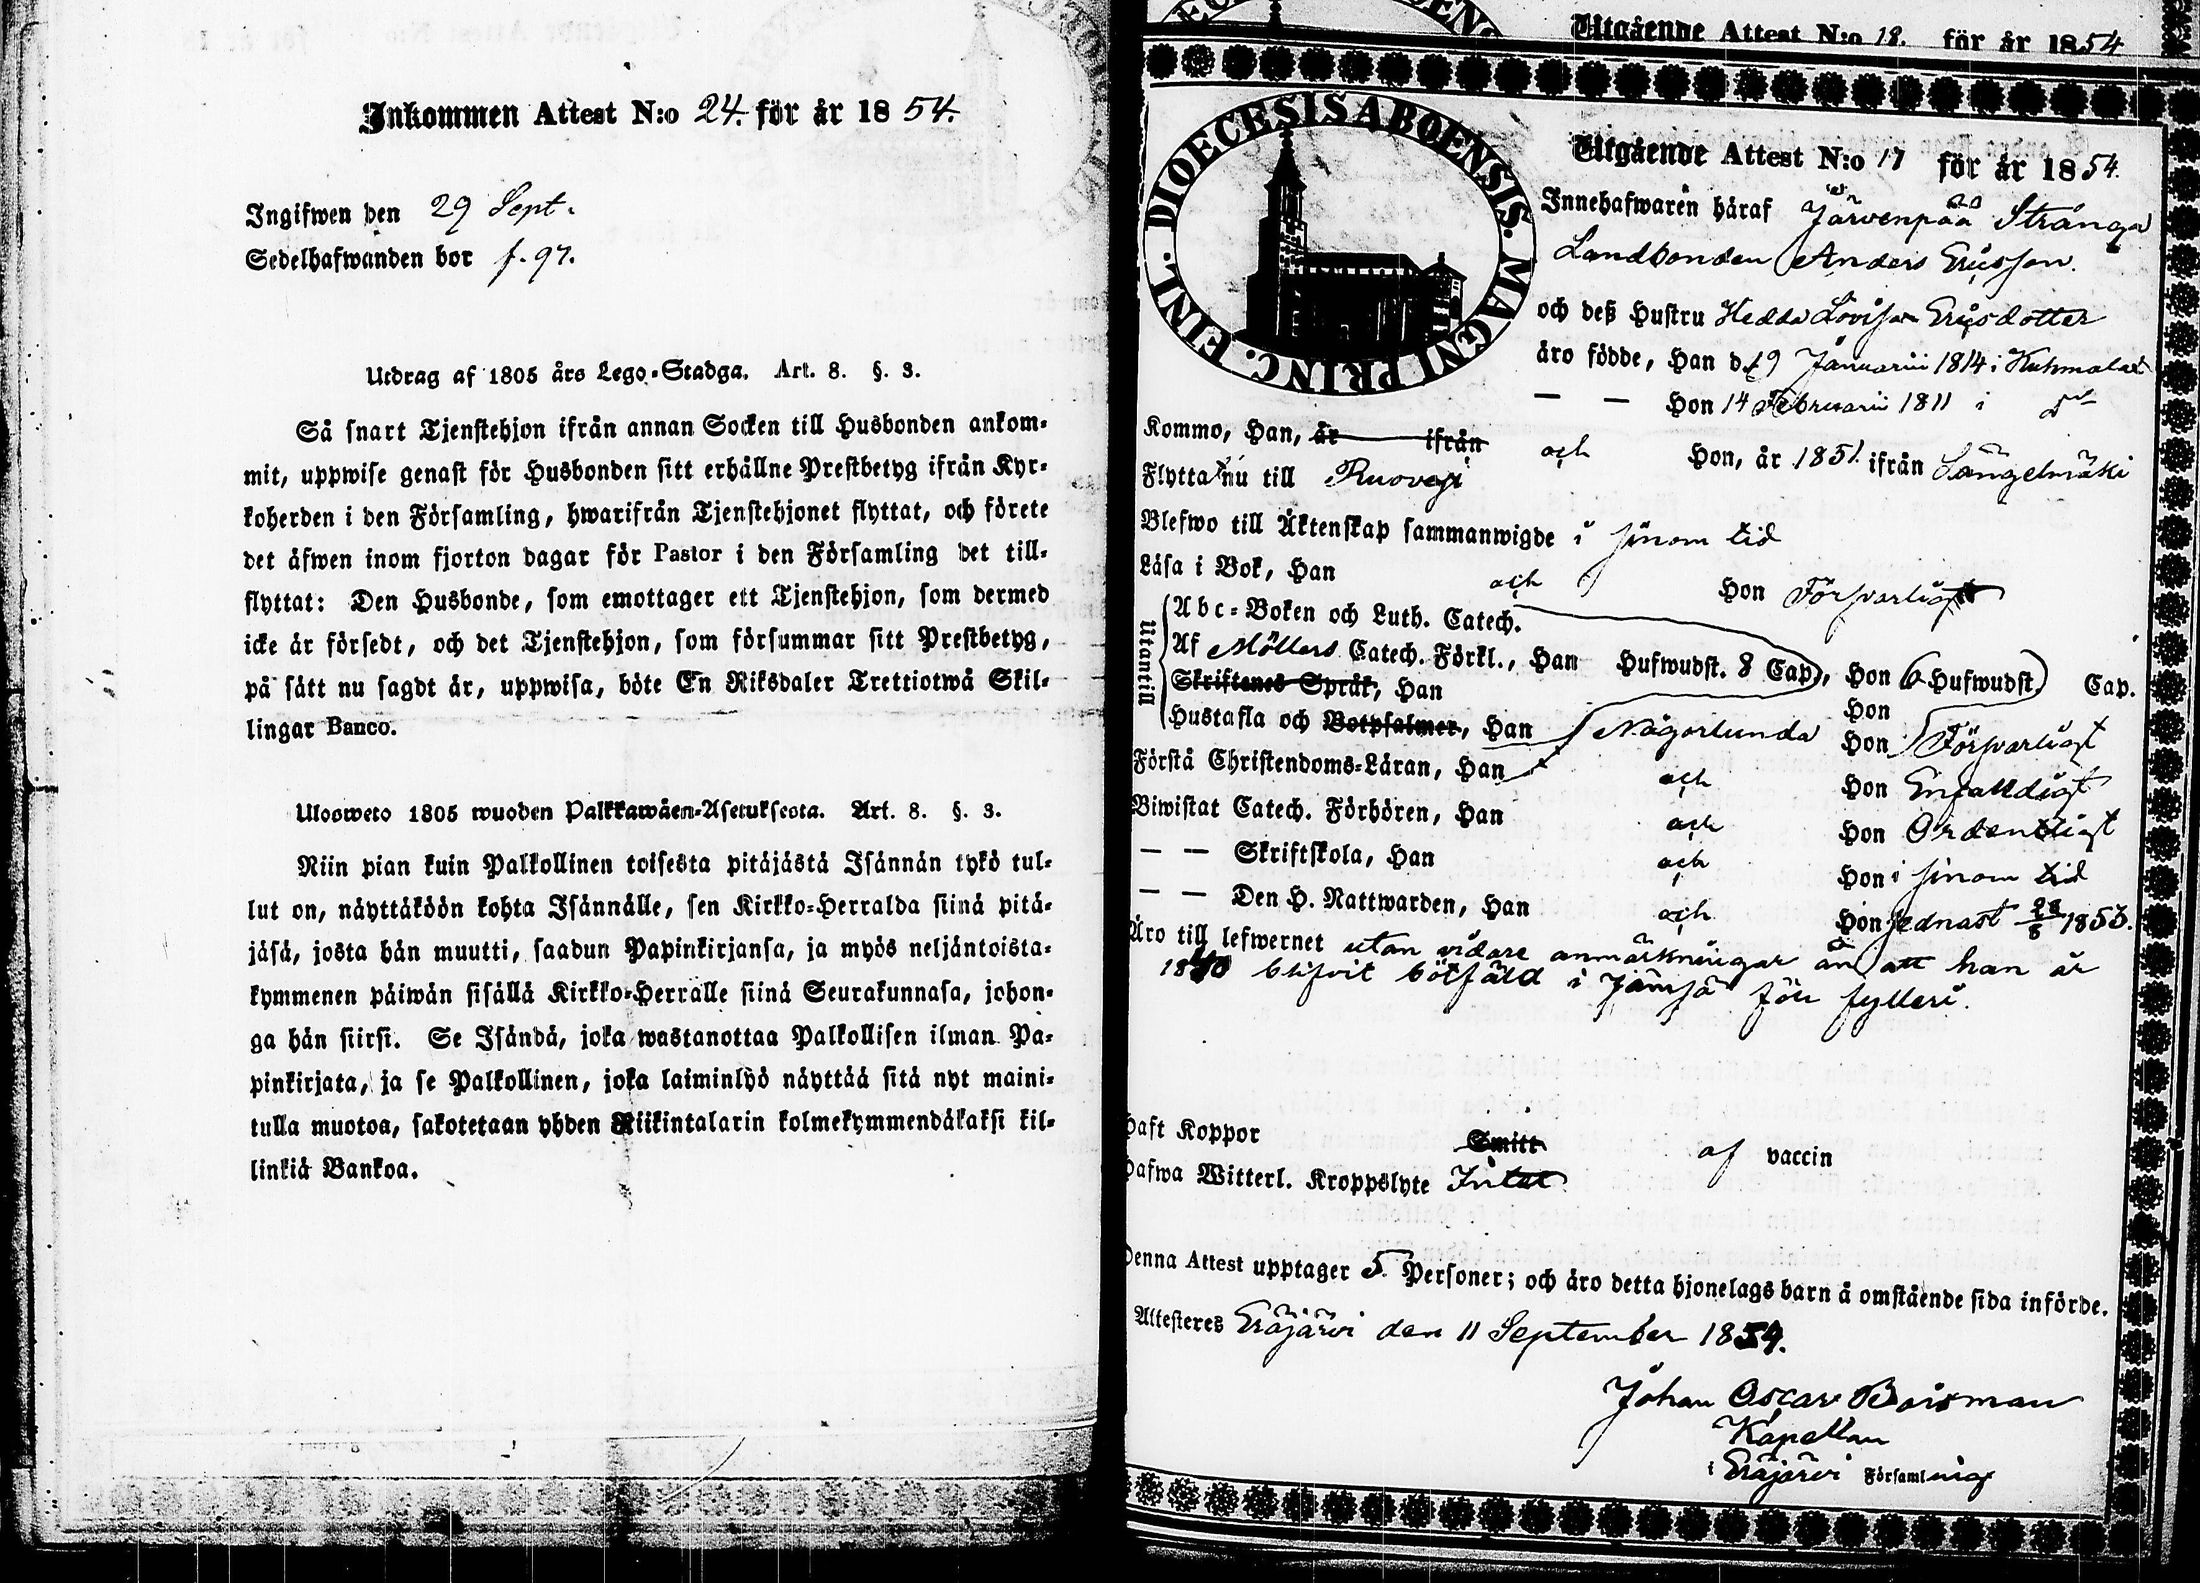 Inkommen Attest N:o 24. för år 1854.
Ingifwen den 29 Sept.
Sedelhafwanden bor f. 97.
Utdrag af 1805 års Lego-Stadga. Art. 8. §. 3.
Så snart Tjenstehjon ifrån annan Socken till Husbonden ankom-
mit, uppwise genast för Husbonden sitt erhållne Prestbetyg ifrån Kyr-
koherden i den Församling, hwarifrån Tjenstehjonet flyttat, och förete
det äfwen inom fjorton dagar för Pastor i den Församling det till-
flyttat: Den Husbonde, som emottager ett Tjenstehjon, som dermed
icke är försedt, och det Tjenstehjon, som försummar sitt Prestbetyg,
på sätt nu sagdt är, uppwisa, böte En Riksdaler Trettiotwå Skil-
lingar Banco.
Ulosweto 1805 wuoden Palkkawäen-Asetuksesta. Art. 8. §. 3.
Niin pian kuin Palkollinen toisesta pitäjästä Isännän tykö tul-
lut on, näyttäköön kohta Isännälle, sen Kirkko-Herralda siinä pitä-
jäsä, josta hän muutti, saadun Papinkirjansa, ja myös neljäntoista-
kymmenen päiwän sisällä Kirkko-Herralle siinä Seurakunnasa, johon-
ga hän siirsi. Se Isändä, joka wastanottaa Palkollisen ilman Pa-
pinkirjata, ja se Palkollinen, joka laiminlyö näyttää sitä nyt maini-
tulla muotoa, sakotetaan yhden Riikintalarin kolmekymmendäkaksi kil-
linkiä Bankoa.
Utgående Attest N:o 18. för år 1854
DIOECESIS ABOENSIS. MAGNI PRINC. FINL.
Utgående Attest N:o 17 för år 1854.
Innehafwaren häraf Järvenpää Strånga
Landbonden Anders Ericsson.
och deß Hustru Hedda Lovisa Ericsdotter
äro födde, Han d. 19 Januarii 1814 i Kuhmalax
— — Hon 14 Februarii 1811 i do
Kommo, Han, år ifrån och Hon, år 1851 ifrån Längelmäki
Flytta nu till Ruovesi
Blefwo till Äktenskap sammanwigde i sinom tid
Läsa i Bok, Han och Hon Försvarligt
Utantill
Abc-Boken och Luth. Catech.
Af Möllers Catech. Förkl., Han Hufwudst. 8 Cap., Hon 6 Hufwudst. Cap.
Skriftenes Språk, Han Hon
Hustafla och Botpsalmer, Han Någorlunda Hon Försvarligt
Förstå Christendoms-Läran, Han och Hon Enfalldigt
Biwistat Catech. Förhören, Han och Hon Ordentligt
— — Skriftskola, Han och Hon i sinom tid
— — Den H. Nattwarden, Han och Hon sednast 28/8 1853.
Äro till lefwernet utan vidare anmärkningar än att han är
1840 blifvit bötfäld i Jämsä för fylleri.
Haft Koppor Smitt af vaccin
Hafwa Witterl. Kroppslyte Intet
Denna Attest upptager 5. Personer; och äro detta hjonelags barn å omstående sida införde.
Attesteres Eräjärvi den 11 September 1854.
Johan Oscar Boisman
Kapellan
i Eräjärvi Församling